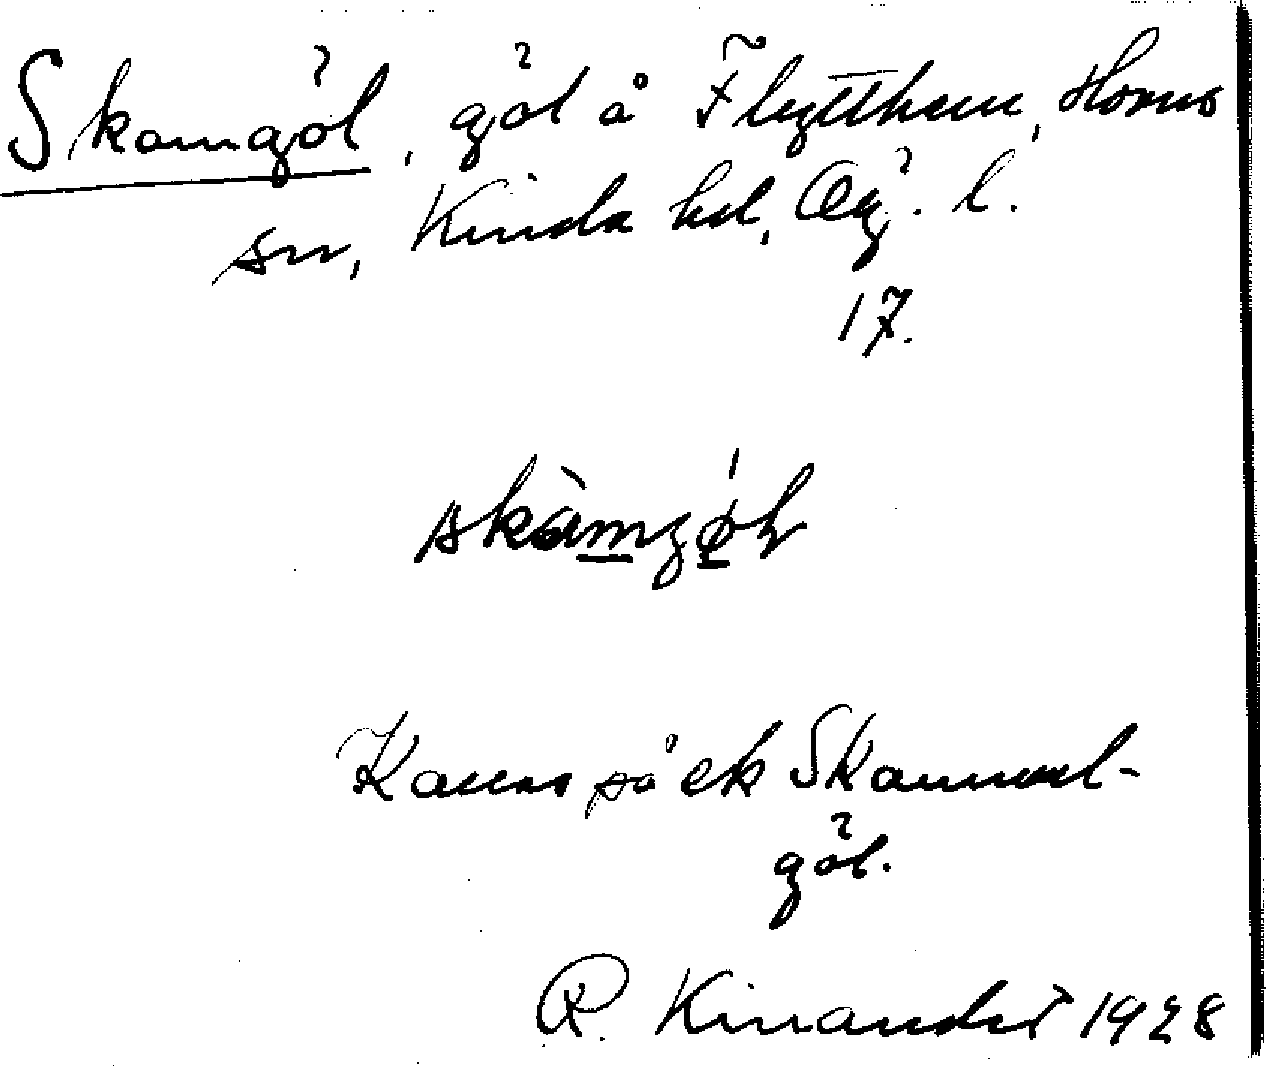 Skamgöl, göl å Flytthem, Horns
sn, Kinda hd, Ög. l.
17.
Kanns på ek Skammel-
göl.
R. Kinander 1928